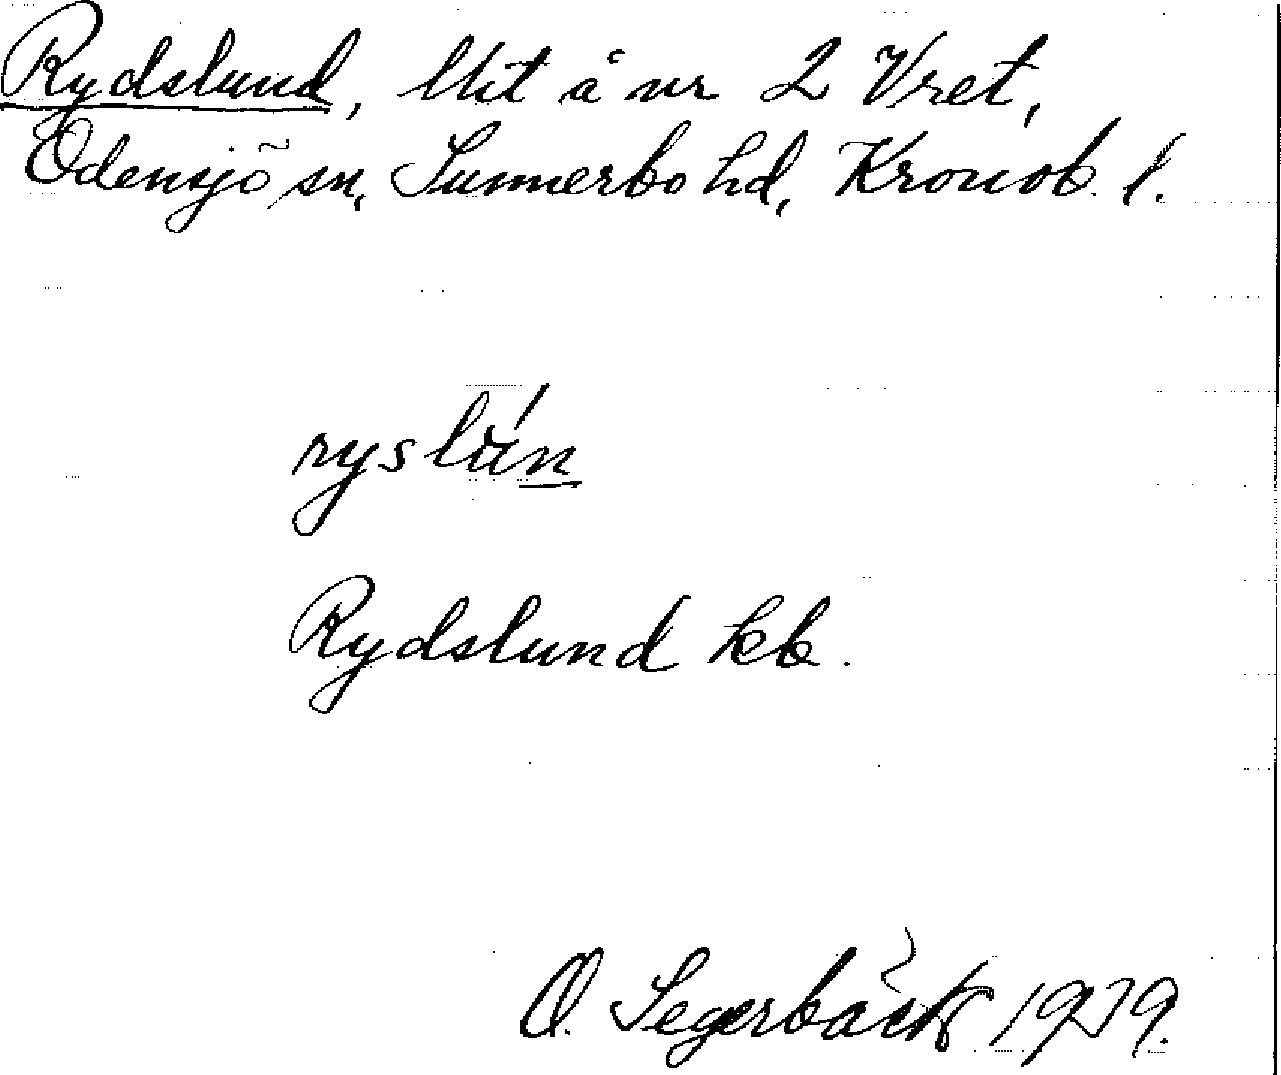 Rydslund, lht å nr 2 Vret,
Odensjö sn, Sunnerbo hd, Kronob. l.
ryslún
Rydslund kb.
O. Segerbäck 1939.